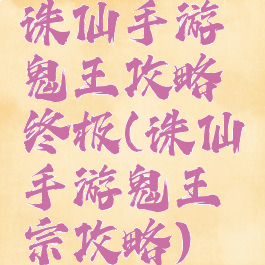 诛仙手游
鬼王攻略
终极(诛仙
手游鬼王
宗攻略)